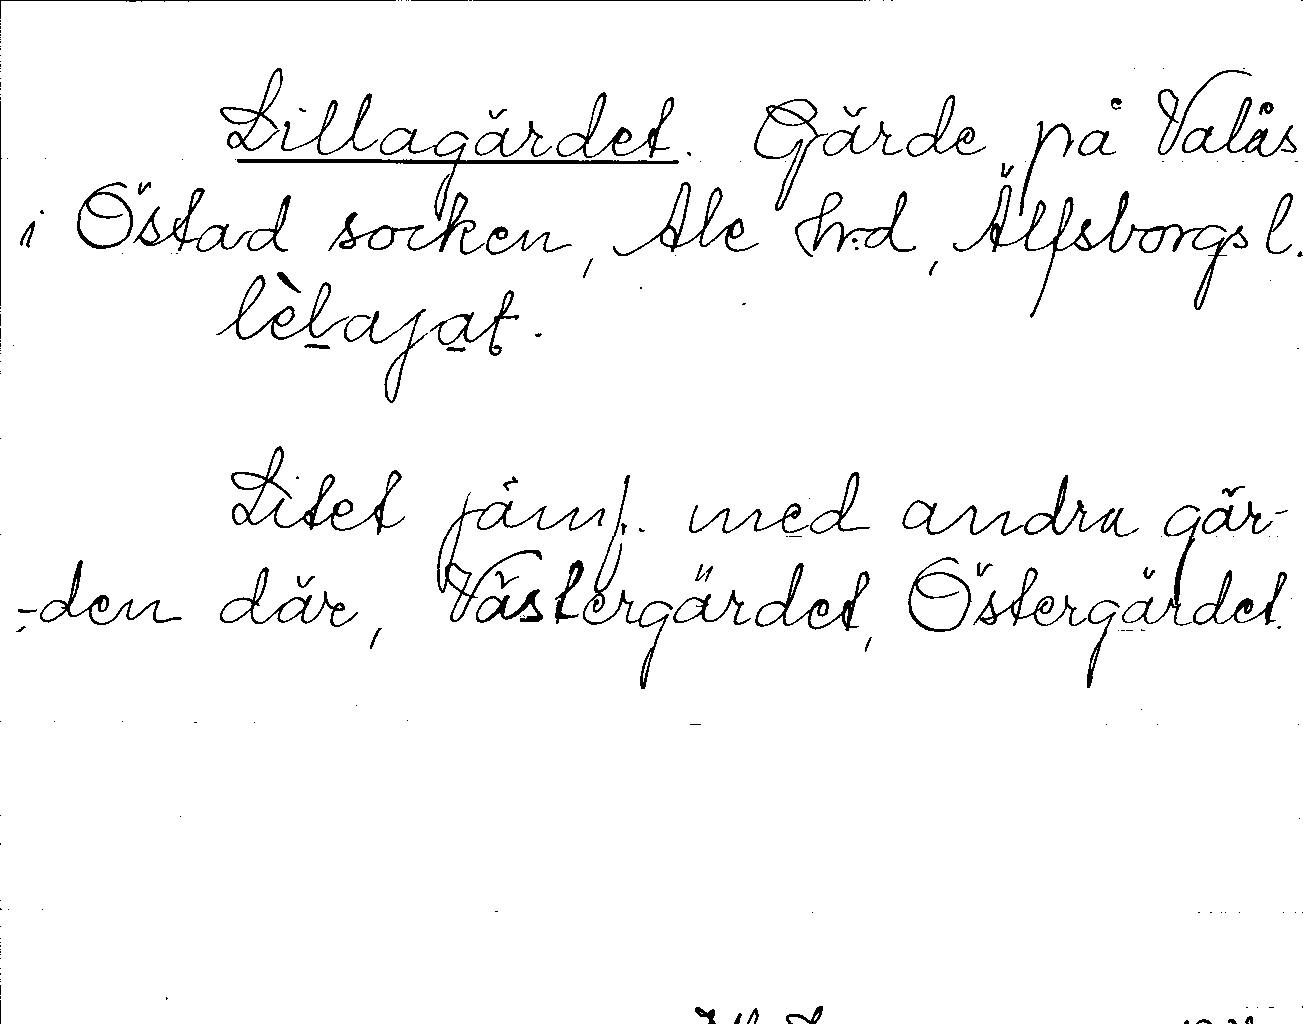 Lillagärdet. Gärde på Valås
i Östad socken, Ale hrd, Älfsborgs l.
lèlajat.
Litet jämf. med andra gär-
-den där, Västergärdet, Östergärdet.